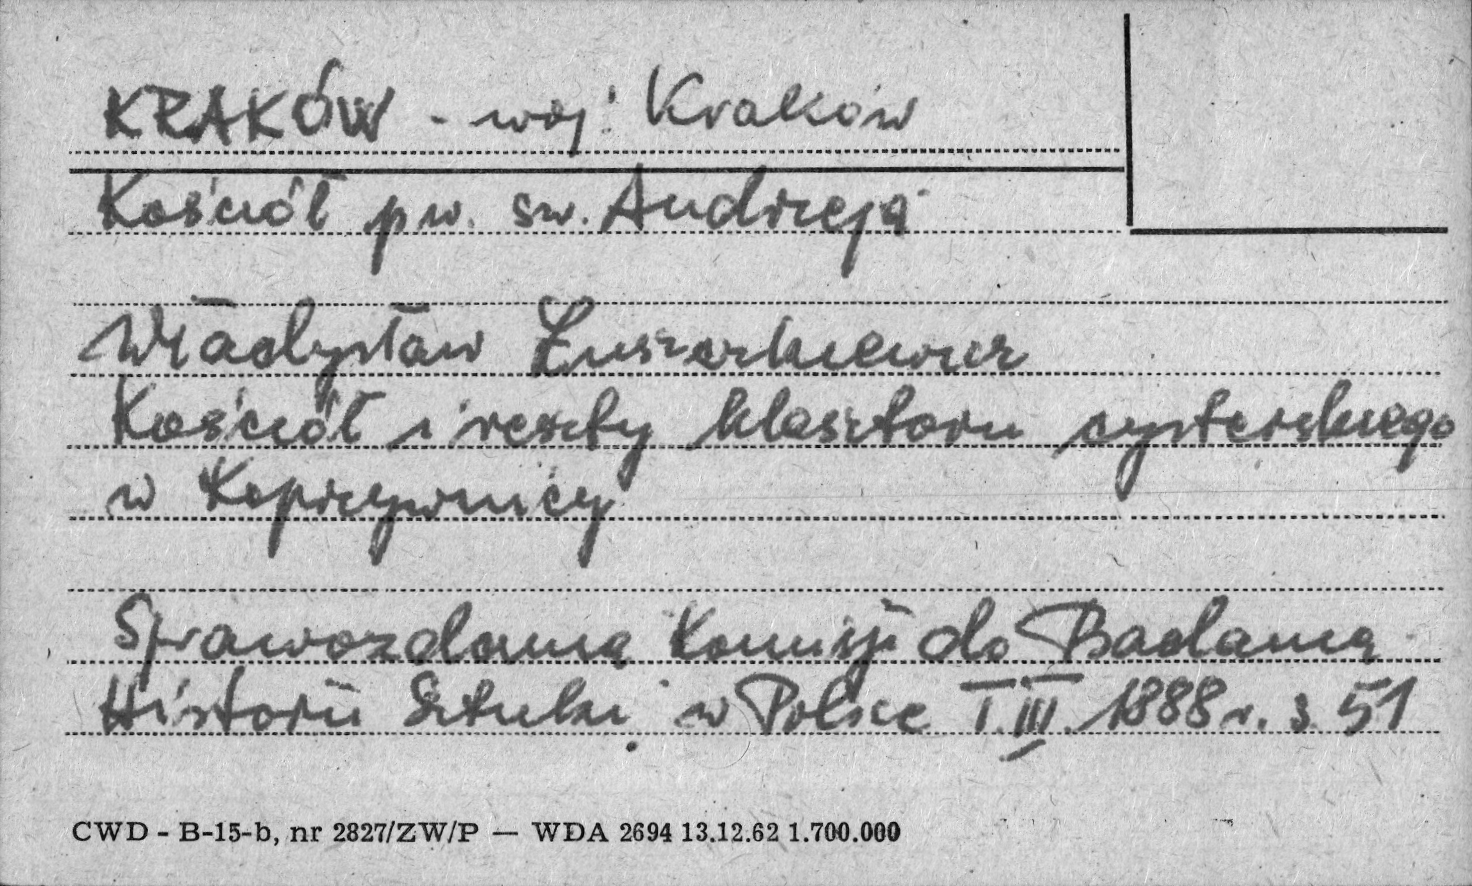 KRAKÓW - woj. Kraków
Kościół pw. św. Andrzeja
Władysław Łuszczkiewicz
Kościół i reszty klasztoru cysterskiego
w Koprzywnicy
Sprawozdania Komisji do Badania
Historii Sztuki w Polsce T.III. 1888 r. s. 51
CWD - B-15-b, nr 2827/ZW/P — WDA 2694 13.12.62 1.700.000